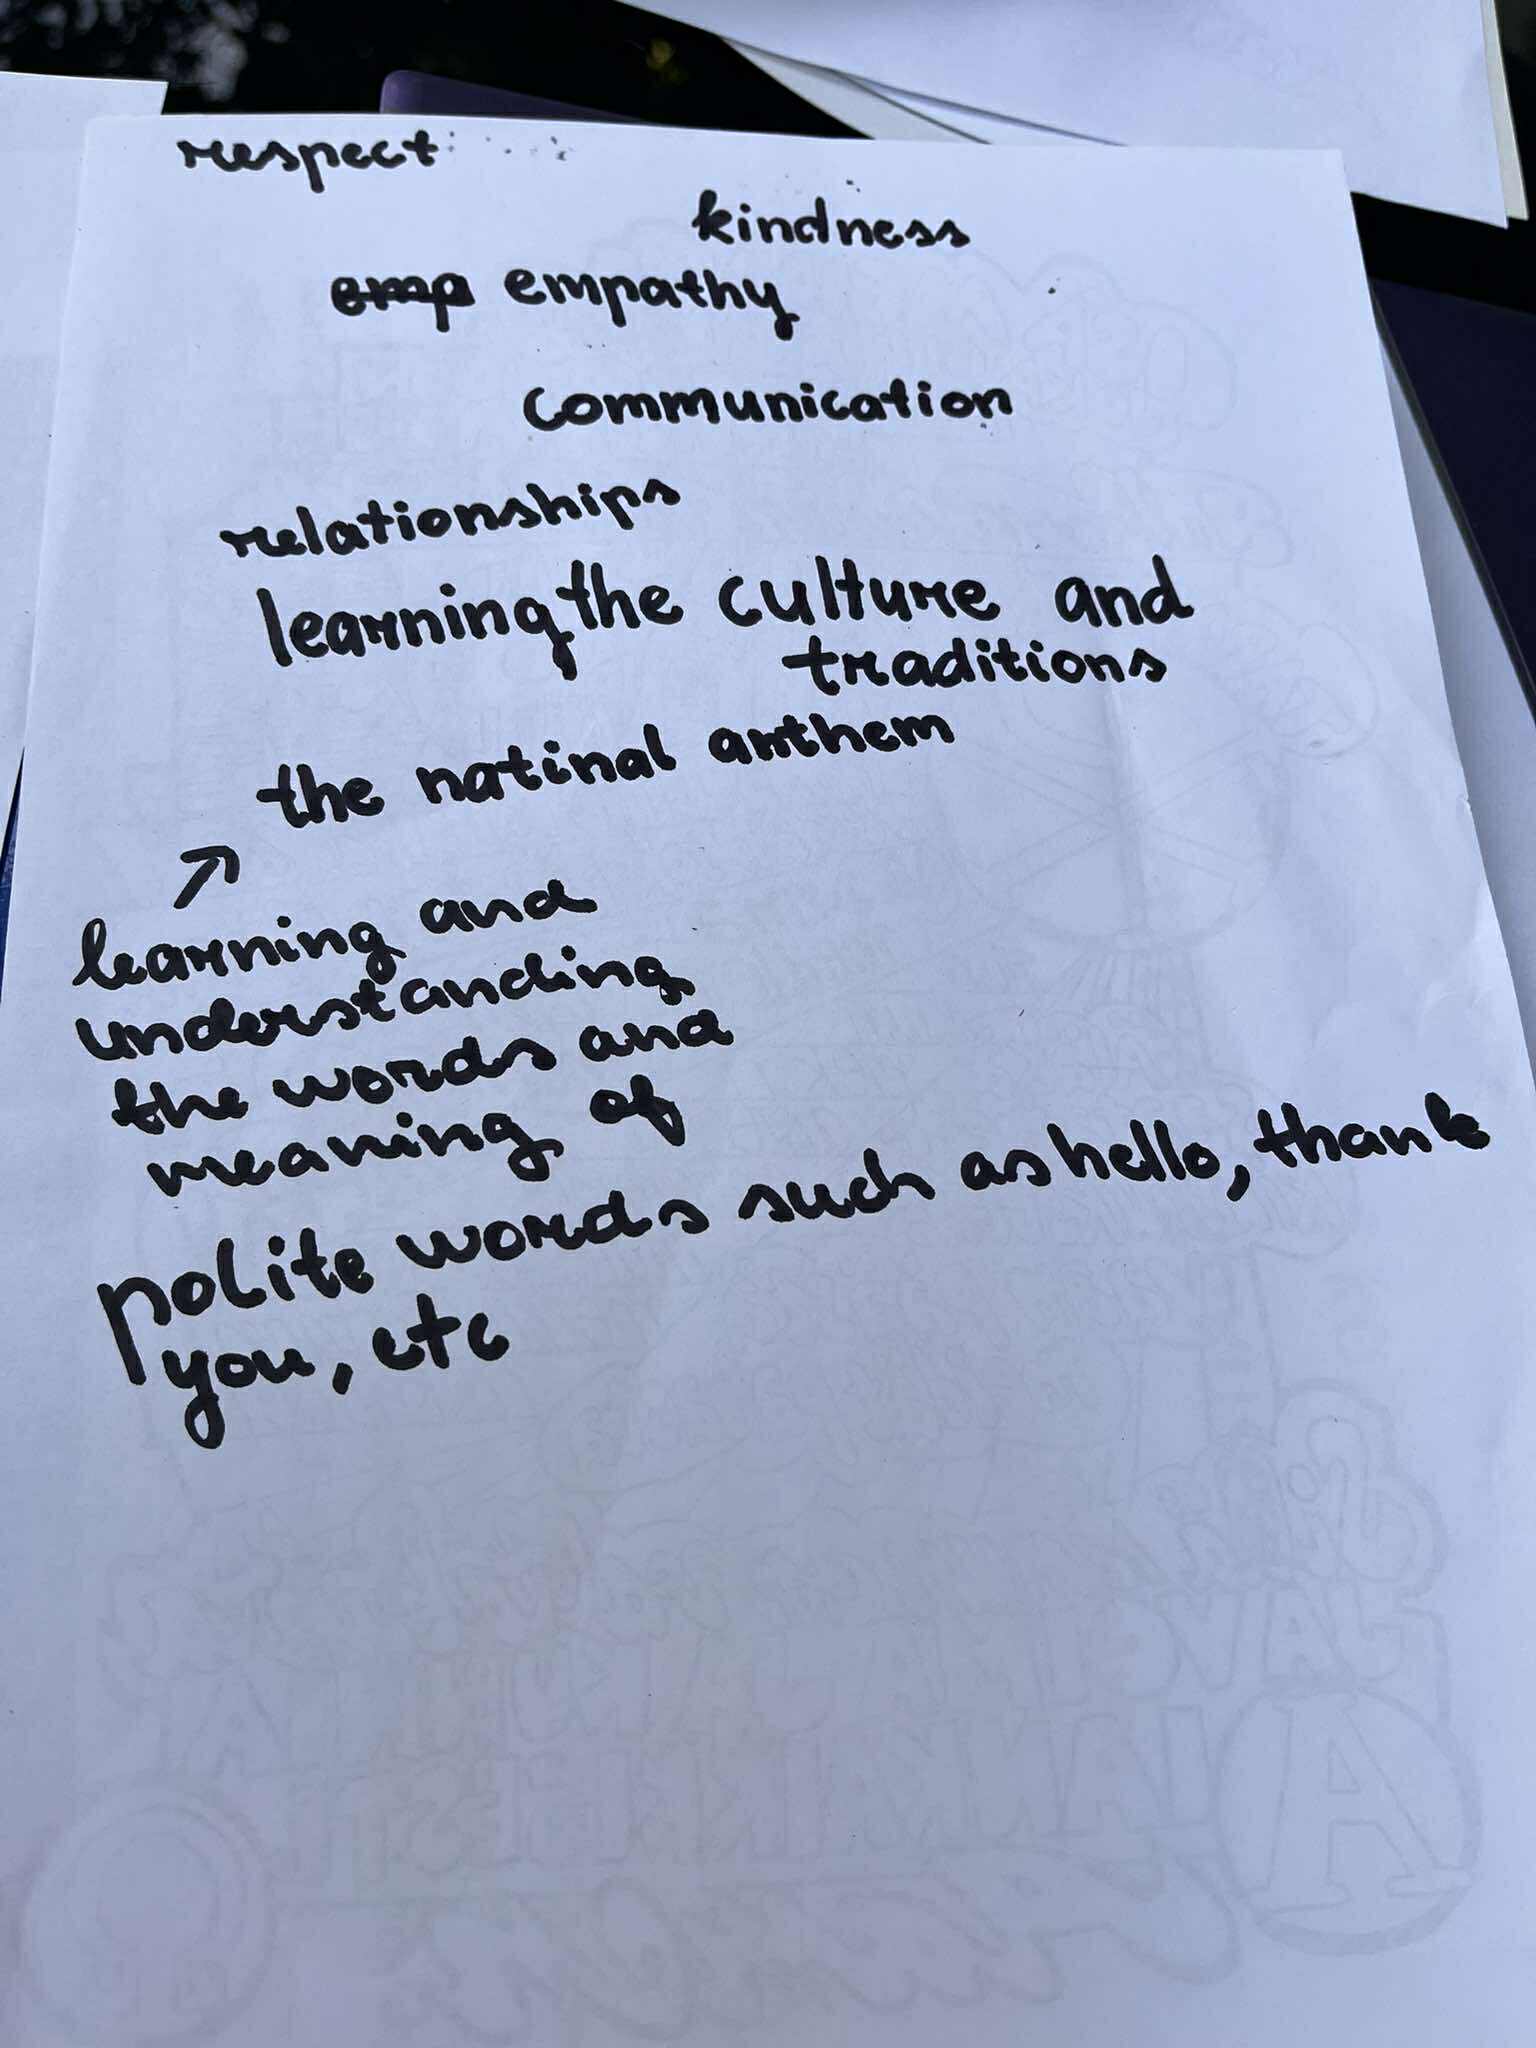 respect
kindness
emp empathy
communication
relationships
learning the culture and
traditions
the natinal anthem
learning and
understanding
the words and
meaning of
polite words such as hello, thank
you, etc